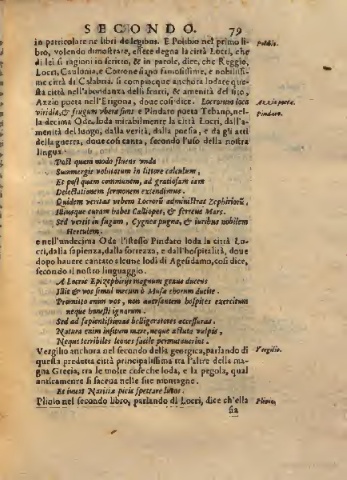 SECONDO. 79
in particolare ne libri de legibus. E Polibio nel primo li-
bro, volendo dimostrare, essere degna la città Locri, che
di lei si ragioni in scritto, & in parole, dice, che Reggio,
Locri, Caulonia, e Cotrone siano famosissime, e nobilissi-
me città di Calabria. si compiacque anchora lodare que-
sta città nell'abundanza delli frutti, & amenità del sito,
Azzio poeta nell'Erigona, doue così dice. Locrorum loca
viridia, & frugum vbera sunt e Pindaro poeta Tebano, nel-
la decima Ode, loda mirabilmente la città Locri, dall'a-
menità del luogo, dalla verità, dalla poesia, e da gli atti
della guerra, doue così canta, secondo l'uso della nostra
lingua.
Polibio.
Azzio poeta.
Pindaro.
Post quem modo fluens vnda
Summergit volutatum in littore calculum,
Et post quem communem, ad gratiosam tam
Delectationem sermonem extendimus.
Quidem veritas vrbem Locrorũ administrat Zephiriorũ,
Hiusque curam habet Calliopes, & ferreus Mars.
Sed vertit in fugam, Cygnea pugna, & furibus nobilem
Herculem.
e nell'undecima Oda l'istesso Pindaro loda la città Lo-
cri, dalla sapienza, dalla fortezza, e dall'hospitalità, doue
dopo hauere cantato alcune lodi di Agesidamo, così dice,
secondo il nostro linguaggio.
A Locris Epizephirijs magnum genus ducens
Illic & vos simul mecum ò Musæ chorum ducite.
Promitto enim vos, non auersantem hospites exercitum
neque honesti ignarum.
Sed ad sapientissimos belligeratores accessuras.
Natura enim insitum mare, neque astuta vulpis,
Neque terribiles leones facile permutauerint.
Vergilio anchora nel secondo della georgica, parlando di
questa predetta città principalissima tra l'altre della ma-
gna Grecia, tra le molte cose che loda, e la pegola, qual
anticamente si faceua nelle sue montagne.
Vergilio.
Et iuuat Naritiæ picis spectare lucos.
Plinio nel secondo libro, parlando di Locri, dice ch'ella
Plinio,
sia